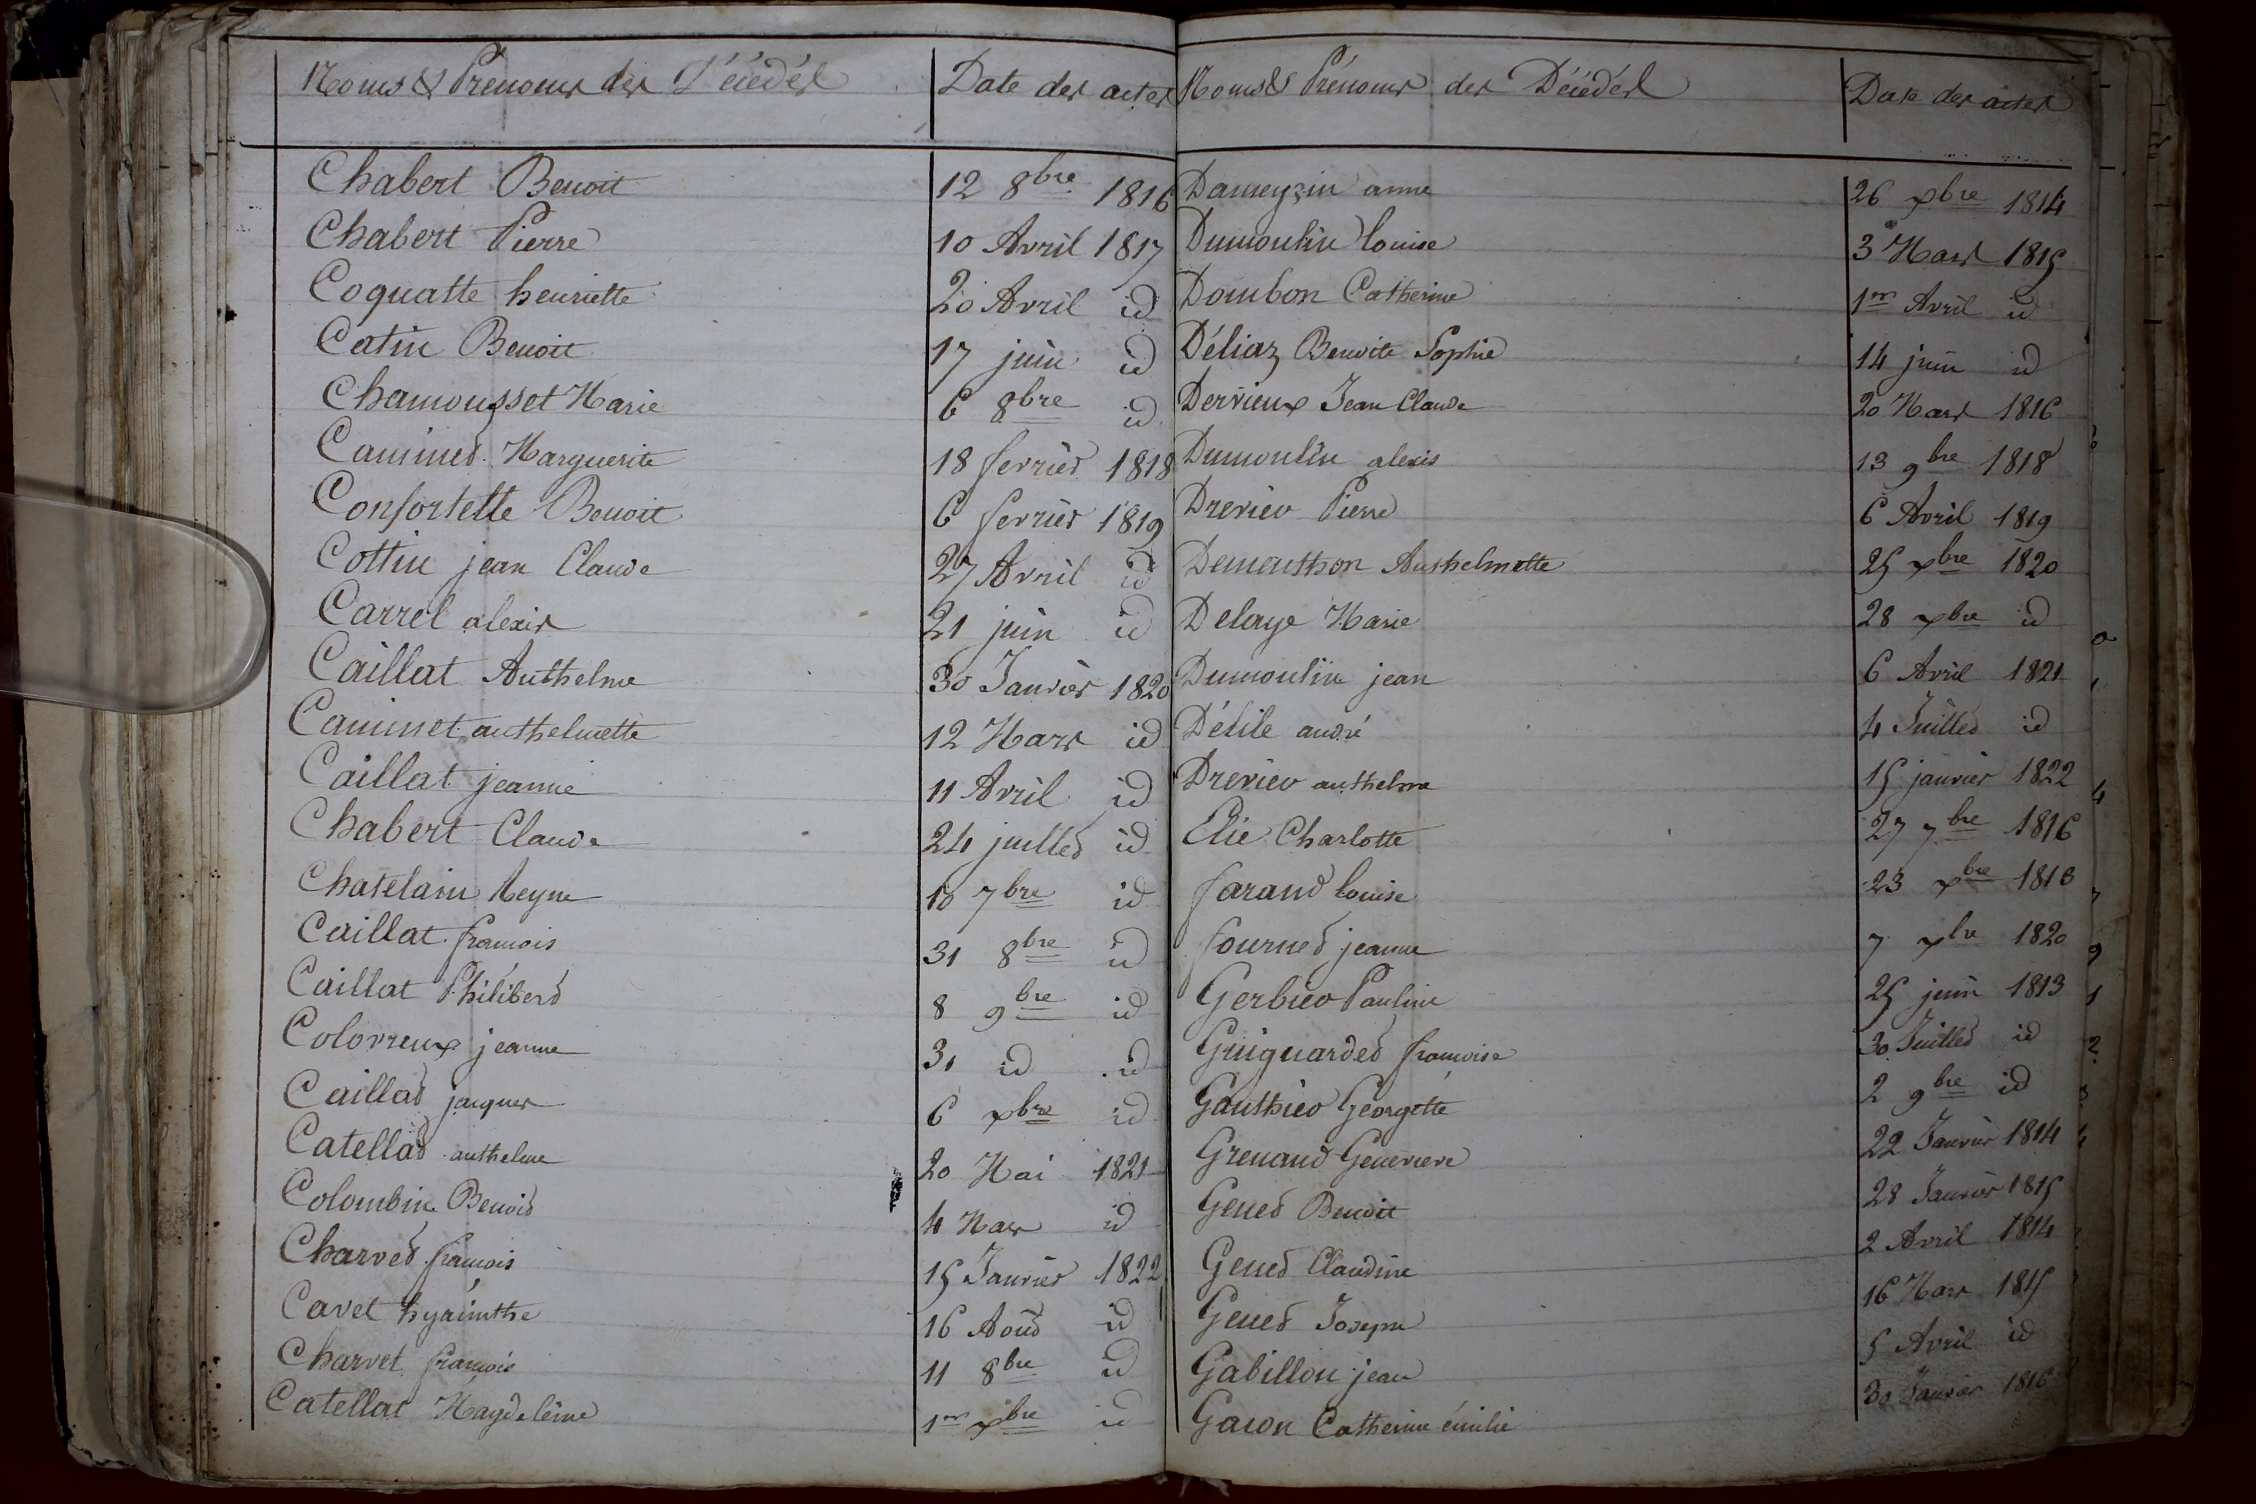 Noms & Prenoms des Décédés Date des actes
Chabert Benoit 12 8bre 1816
Chabert Pierre 10 Avril 1817
Coquatte henriette 20 Avril id
Catin Benoit 17 juin id
Chamousset Marie 6 8bre id
Caminet Marguerite 18 fevrier 1818
Confortette Benoit 6 fevrier 1819
Cottin jean Claude 27 Avril id
Carrel alexis 21 juin id
Caillat Anthelme 30 Janvier 1820
Caminet anthelmette 12 Mars id
Caillat jeanne 11 Avril id
Chabert Claude 24 juillet id
Chatelain Reyne 10 7bre id
Caillat francois 31 8bre id
Caillat Philibert 8 9bre id
Colovreux jeanne 30 id id
Caillat jacques 6 xbre id
Catellat anthelme 20 Mai 1821
Colombin Benoit 4 Mars id
Charvet francois 15 Janvier 1822
Cavet hyacinthe 16 Août id
Charvet francois 11 8bre id
Catellat Magdeleine 1er xbre id
Noms & Prénoms des Décédés Date des actes
Dameyzin anne 26 xbre 1814
Dumoulin louise 3 Mars 1815
Dombon Catherine 1er Avril id
Déliaz Benoite Sophie 14 juin id
Dervieux Jean Claude 20 Mars 1816
Dumoulin alexis 13 9bre 1818
Drevier Pierre 6 Avril 1819
Demonthon Anthelmette 25 xbre 1820
Delaye Marie 28 xbre id
Dumoulin jean 6 Avril 1821
Détile andré 4 Juillet id
Drevier anthelme 15 janvier 1822
Elie Charlotte 27 7bre 1816
farand louise 23 xbre 1818
fournet jeanne 7 xbre 1820
Gerbier Pauline 25 juin 1813
Guiguardet francoise 30 Juillet id
Gauthier Georgette 2 9bre id
Grenand Genevieve 22 Janvier 1814
Genet Benoit 28 Janvier 1815
Genet Claudine 2 Avril 1814
Genet Joseph 16 Mars 1815
Gabillon jean 5 Avril id
Gacon Catherine émilie 30 Janvier 1816